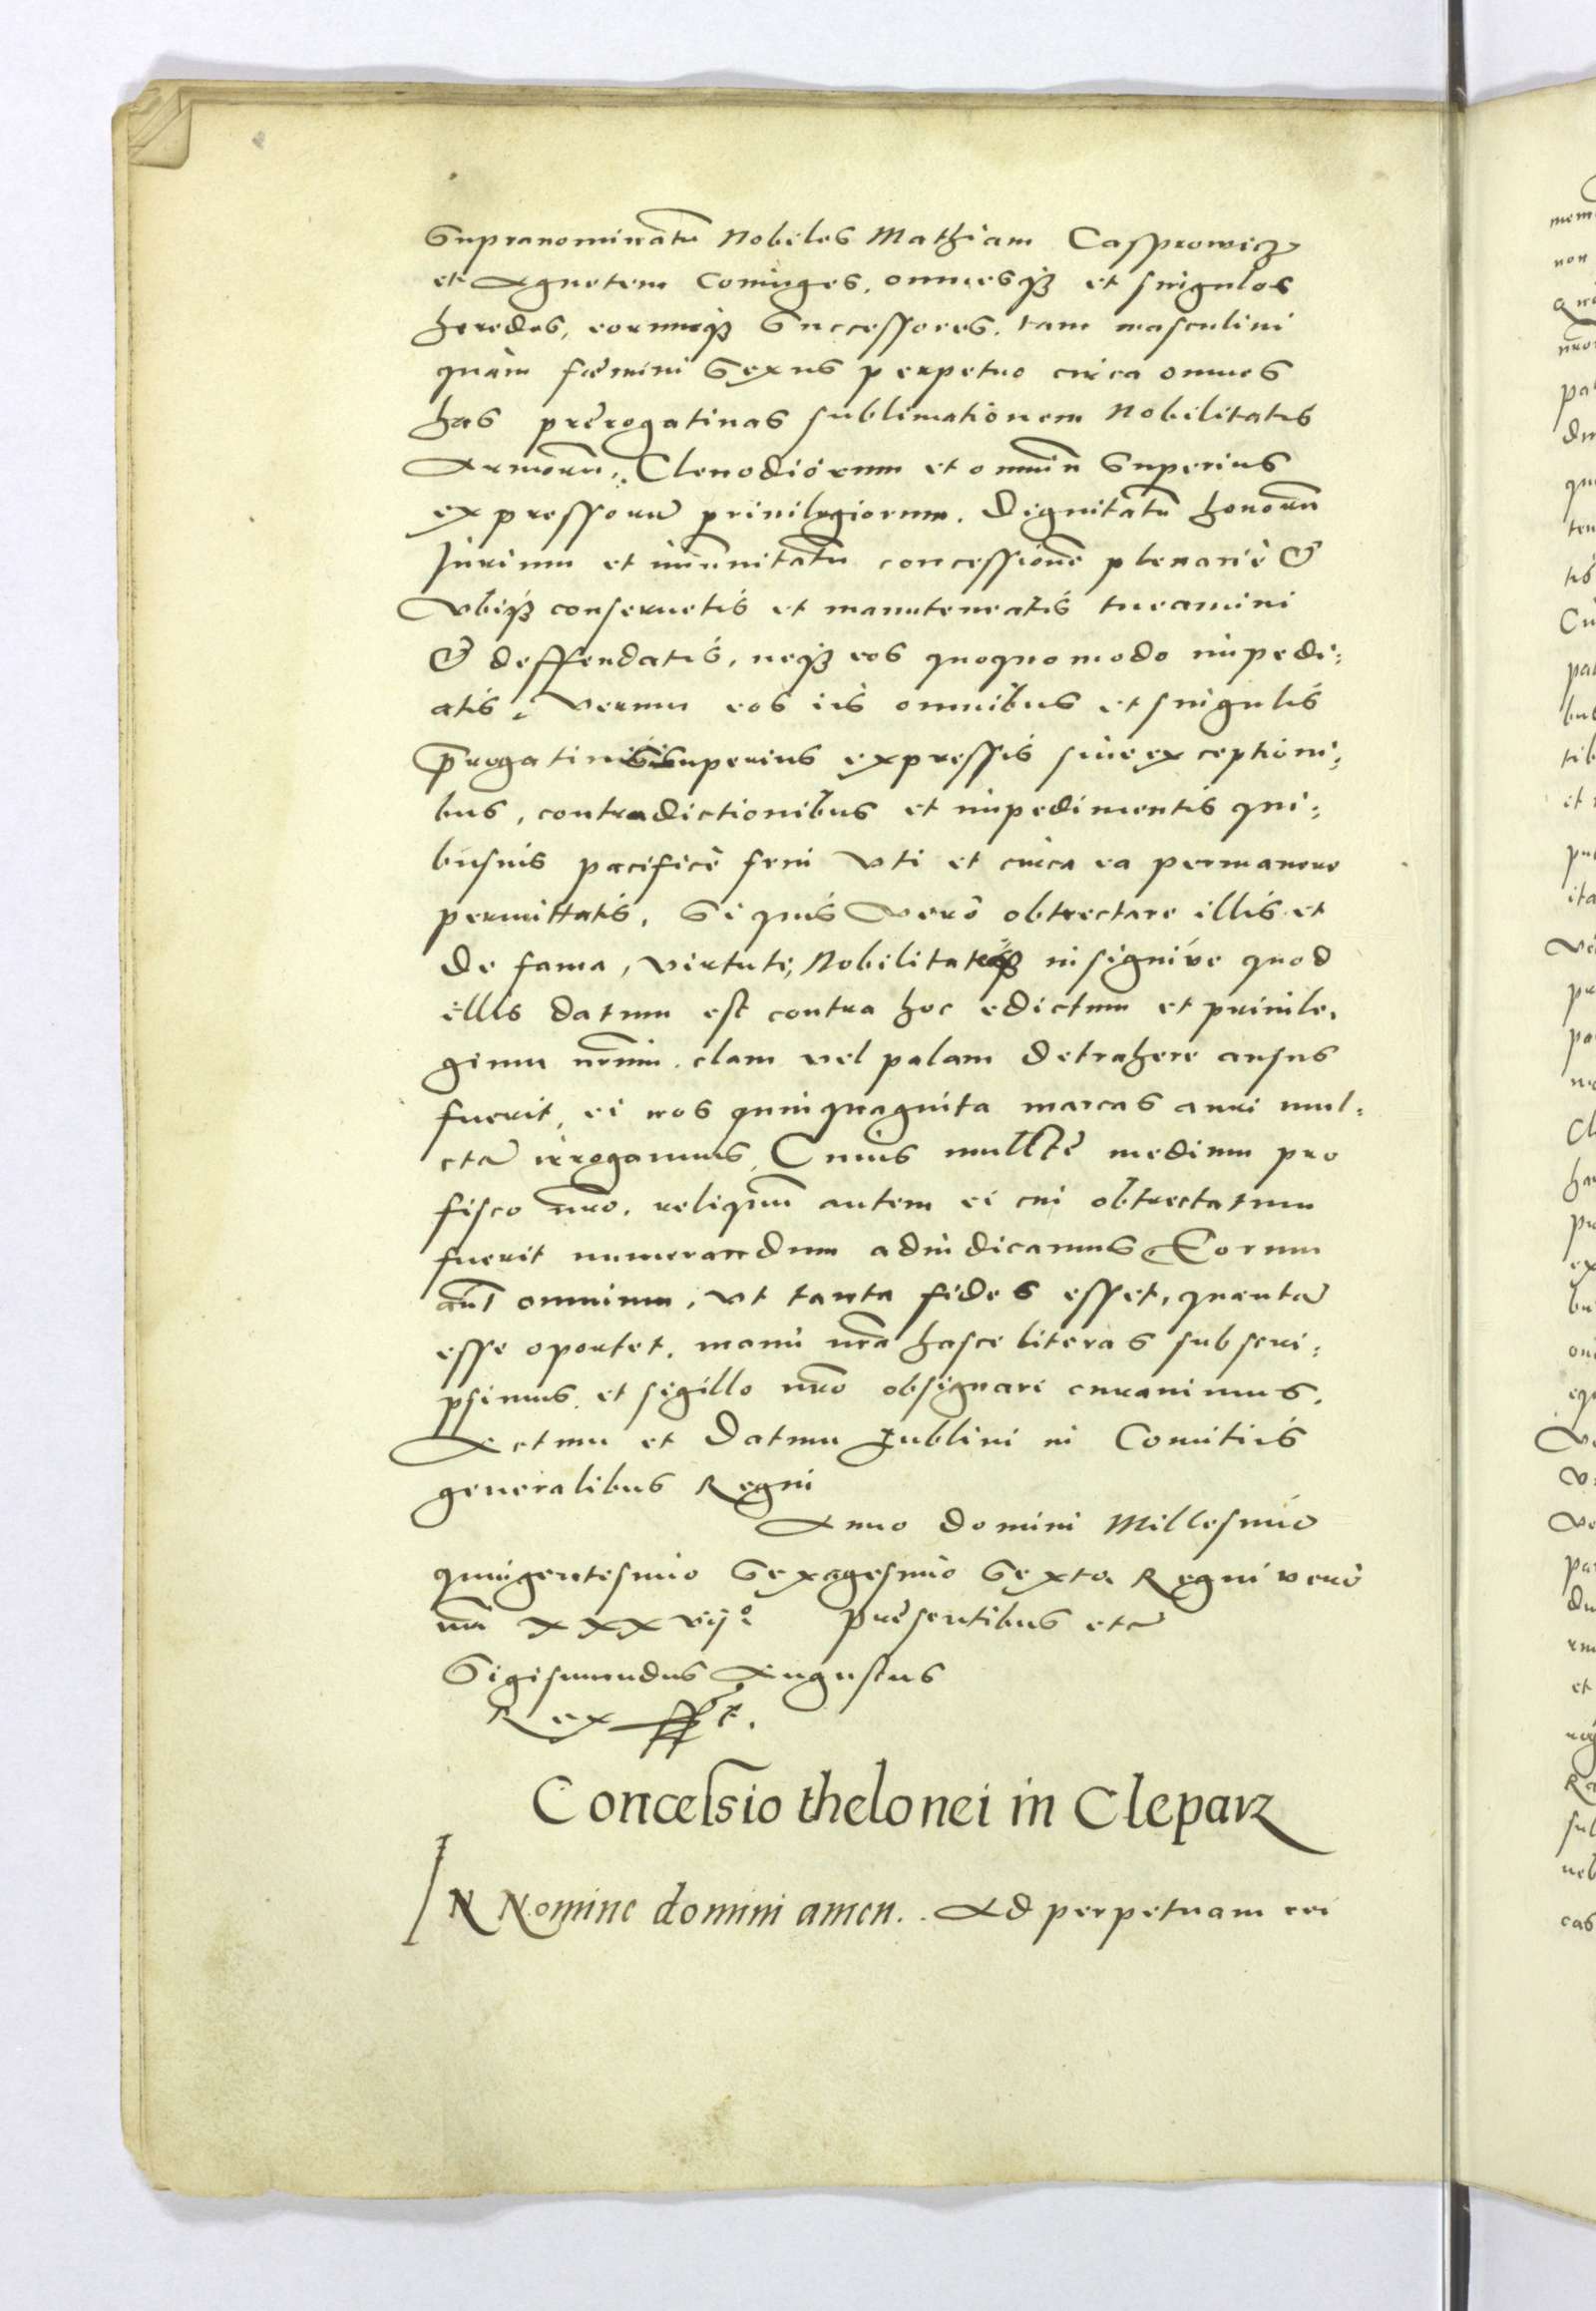 Supranominatū Nobiles Mathiam Casprowicz
et Agnetem Coniuges, omnesqꝫ et singulos
heredes, eorumqꝫ Successores, tam masculini
quàm fœmini Sexus perpetuo circa omnes
has prerogatiuas sublimationem Nobilitatis
Armorū, Clenodiorum et omniū Superius
expressorū priuilegiorum, Dignitatū honorū
Iurium et imūnitatū concessionē plenariè &
vbiqꝫ conseruetis et manuteneatis tueamini
& deffendatis, neqꝫ eos quoquomodo impedi:
atis, verum eos iis omnibus et singulis
p̄rogatiuis superius expressis sine exceptioni:
bus, contradictionibus et impedimentis qui:
busuis pacificè frui vti et circa ea permanere
permittatis, Si quis verò obtrectare illis et
de fama, virtute, Nobilitateqꝫ insigniue quod
illis datum est contra hoc edictum et priuile,
gium nrūm, clam vel palam detrahere ausus
fuerit, ei nos quinquaginta marcas auri mul:
ctā irrogamus, Cuius multe medium pro
fisco nr̄o, reliquū autem ei cui obtrectatum
fuerit numerandum adiudicamus Eorum
aūt omnium, vt tanta fides esset, quantā
esse oportet, manu nr̄a hasce literas subscri:
psimus, et sigillo nr̄o obsignari curauimus.
Actum et Datum Lublini in Comitiis
generalibus Regni
Anno domini Millesimo
quingentesimo Sexagesimo Sexto, Regni verò
nr̄i XXXVIIº presentibus etc̄
Sigismundus Augustus
Rex sſt.
Concessio thelonei in Cleparz
IN Nomine domini amen. Ad perpetuam rei